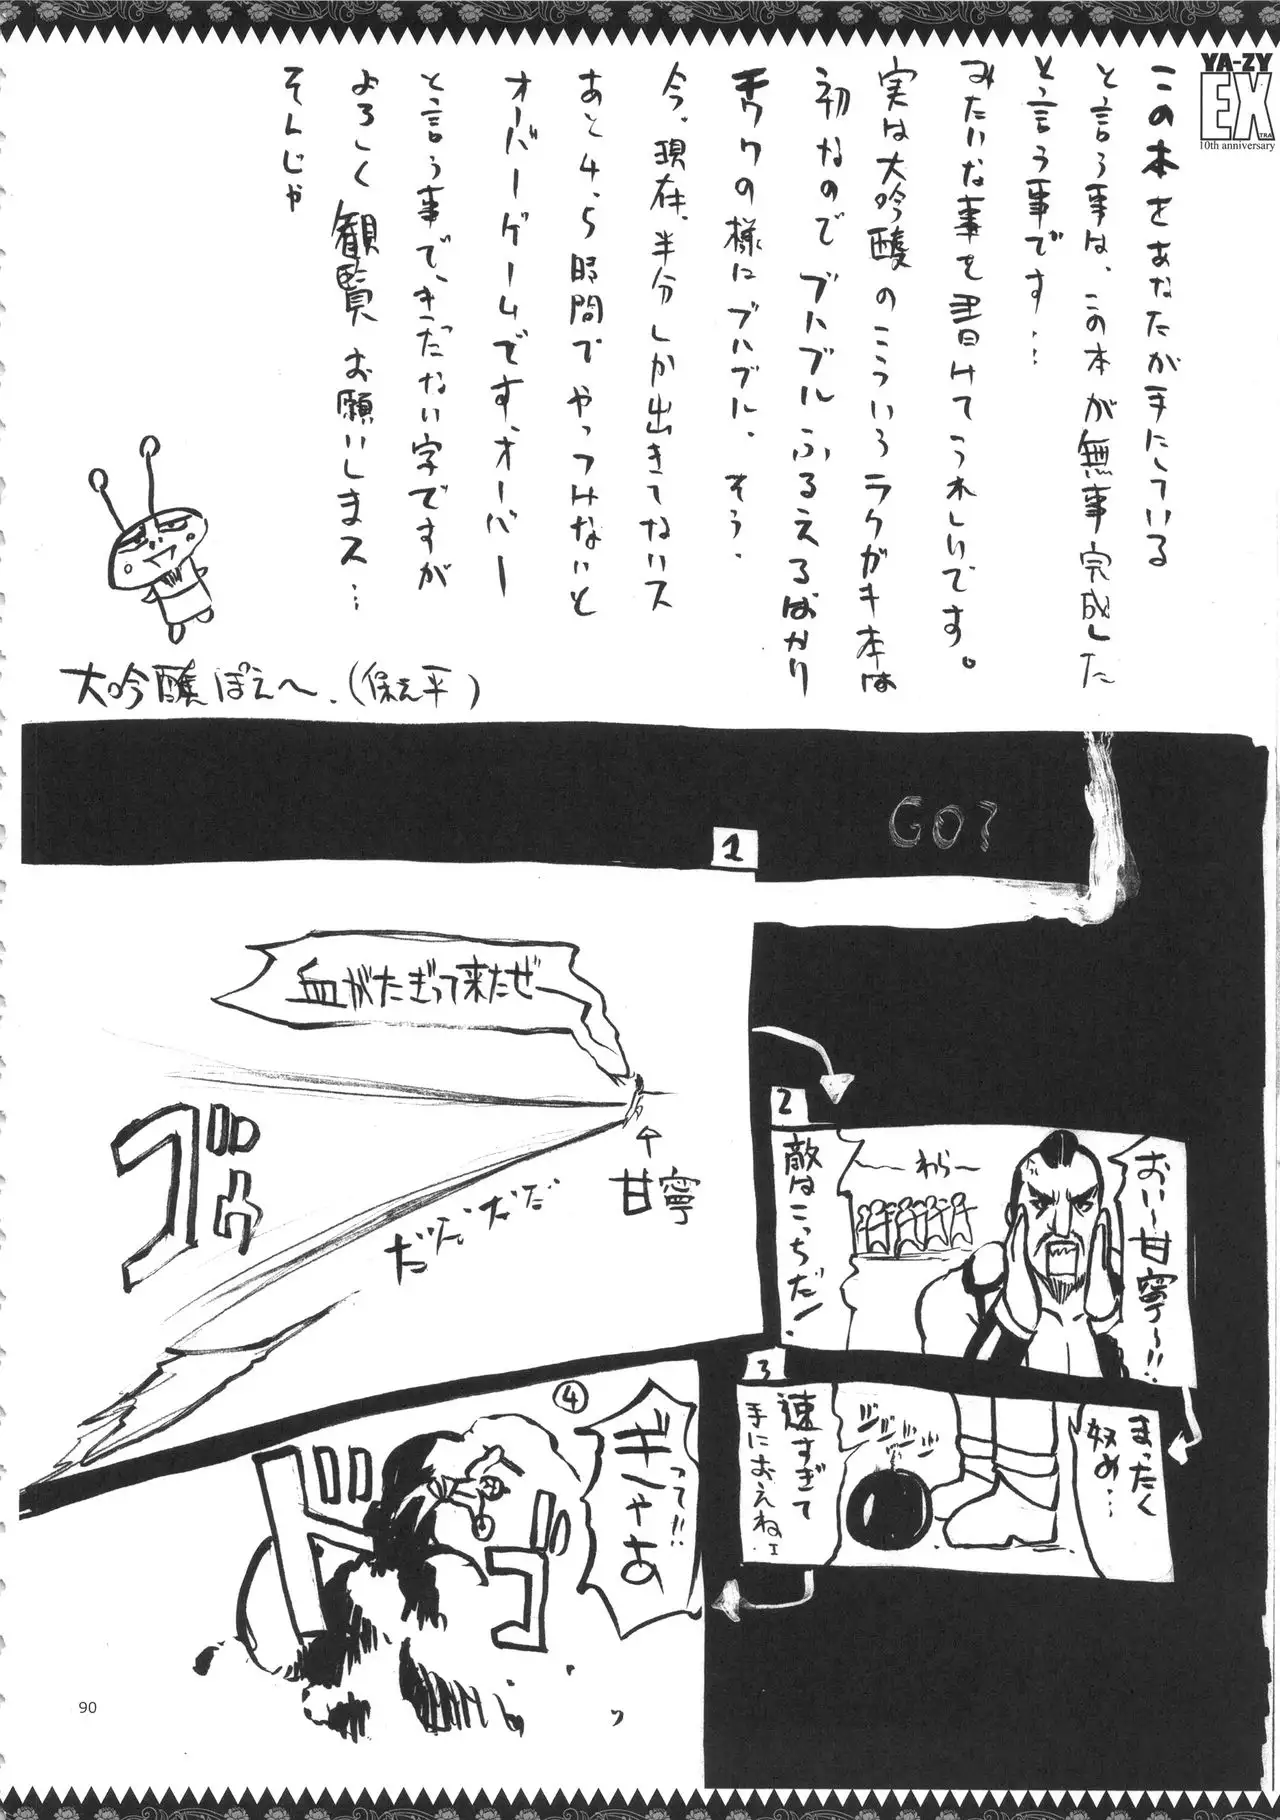 YA-ZY
EX
TRA
10th anniversary
この本をあなたが手にしている
と言う事は、この本が無事完成した
と言う事です…
みたいな事を書けてうれしいです。
実は大吟醸のこういうラクガキ本は
初なのでブルブルふるえるばかり
チワワの様にブルブル、そう、
今、現在、半分しか出きてないス
あと4、5時間でやっつけないと
オーバーゲームです、オーバー
と言う事で、きったない字ですが
よろしく観覧お願いしまス…
そんじゃ
大吟醸ぽえ〜、(保え平)
GO?
1
血がたぎって来たぜ
ゴゥ
甘寧
だだだだ
2
おい〜甘寧〜!!
わら〜
敵はこっちだ!
3
まったく
奴め…
速すぎて
手におえねェ
④
ぎゃあ
って!!
ドゴ
90